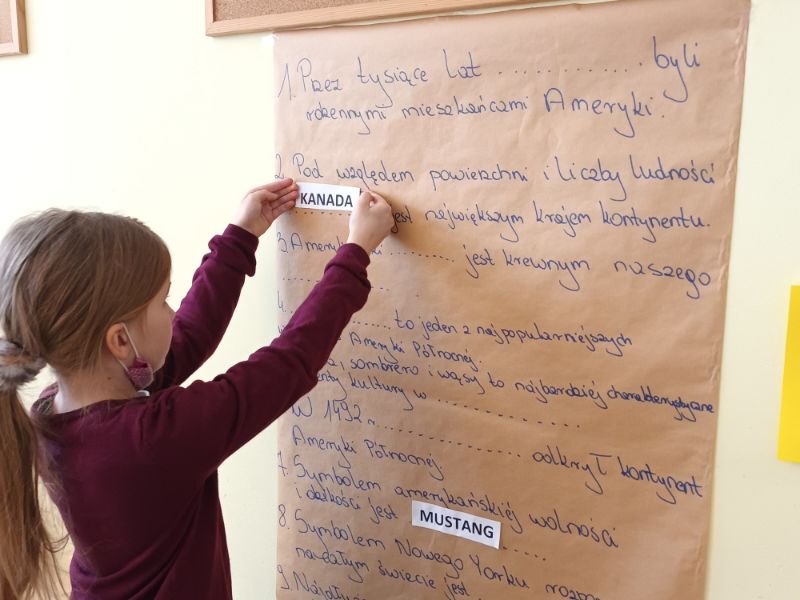 1. Przez tysiące lat .............. byli
rdzennymi mieszkańcami Ameryki.
2. Pod względem powierzchni i liczby ludności
KANADA jest największym krajem kontynentu.
3. Amery ......... jest krewnym naszego
..............
4. ............ to jeden z najpopularniejszych
Ameryki Północnej.
, sombrero i wąsy to najbardziej charakterystyczne
kultury w ..............
W 1492 r. .............. odkrył kontynent
Ameryki Północnej.
7. Symbolem amerykańskiej wolności
i dzikości jest MUSTANG .....
8. Symbolem Nowego Yorku
świecie jest ........
9.